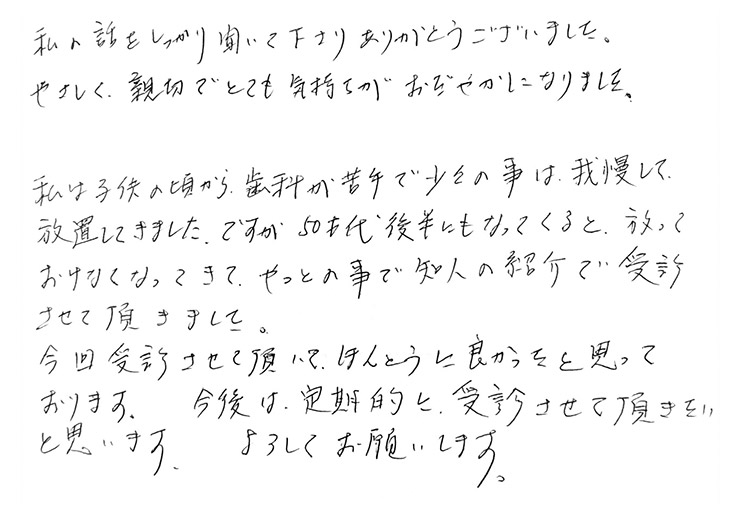 私の話をしっかり聞いて下さりありがとうございました。
やさしく、親切でとても気持ちがおだやかになりました。
私は子供の頃から、歯科が苦手で少々の事は、我慢して、
放置してきました、ですが50才代後半にもなってくると、放って
おけなくなってきて、やっとの事で知人の紹介で受診
させて頂きました。
今回受診させて頂いて、ほんとうに良かったと思って
おります。 今後は、定期的に、受診させて頂きたい
と思います。 よろしくお願いします。